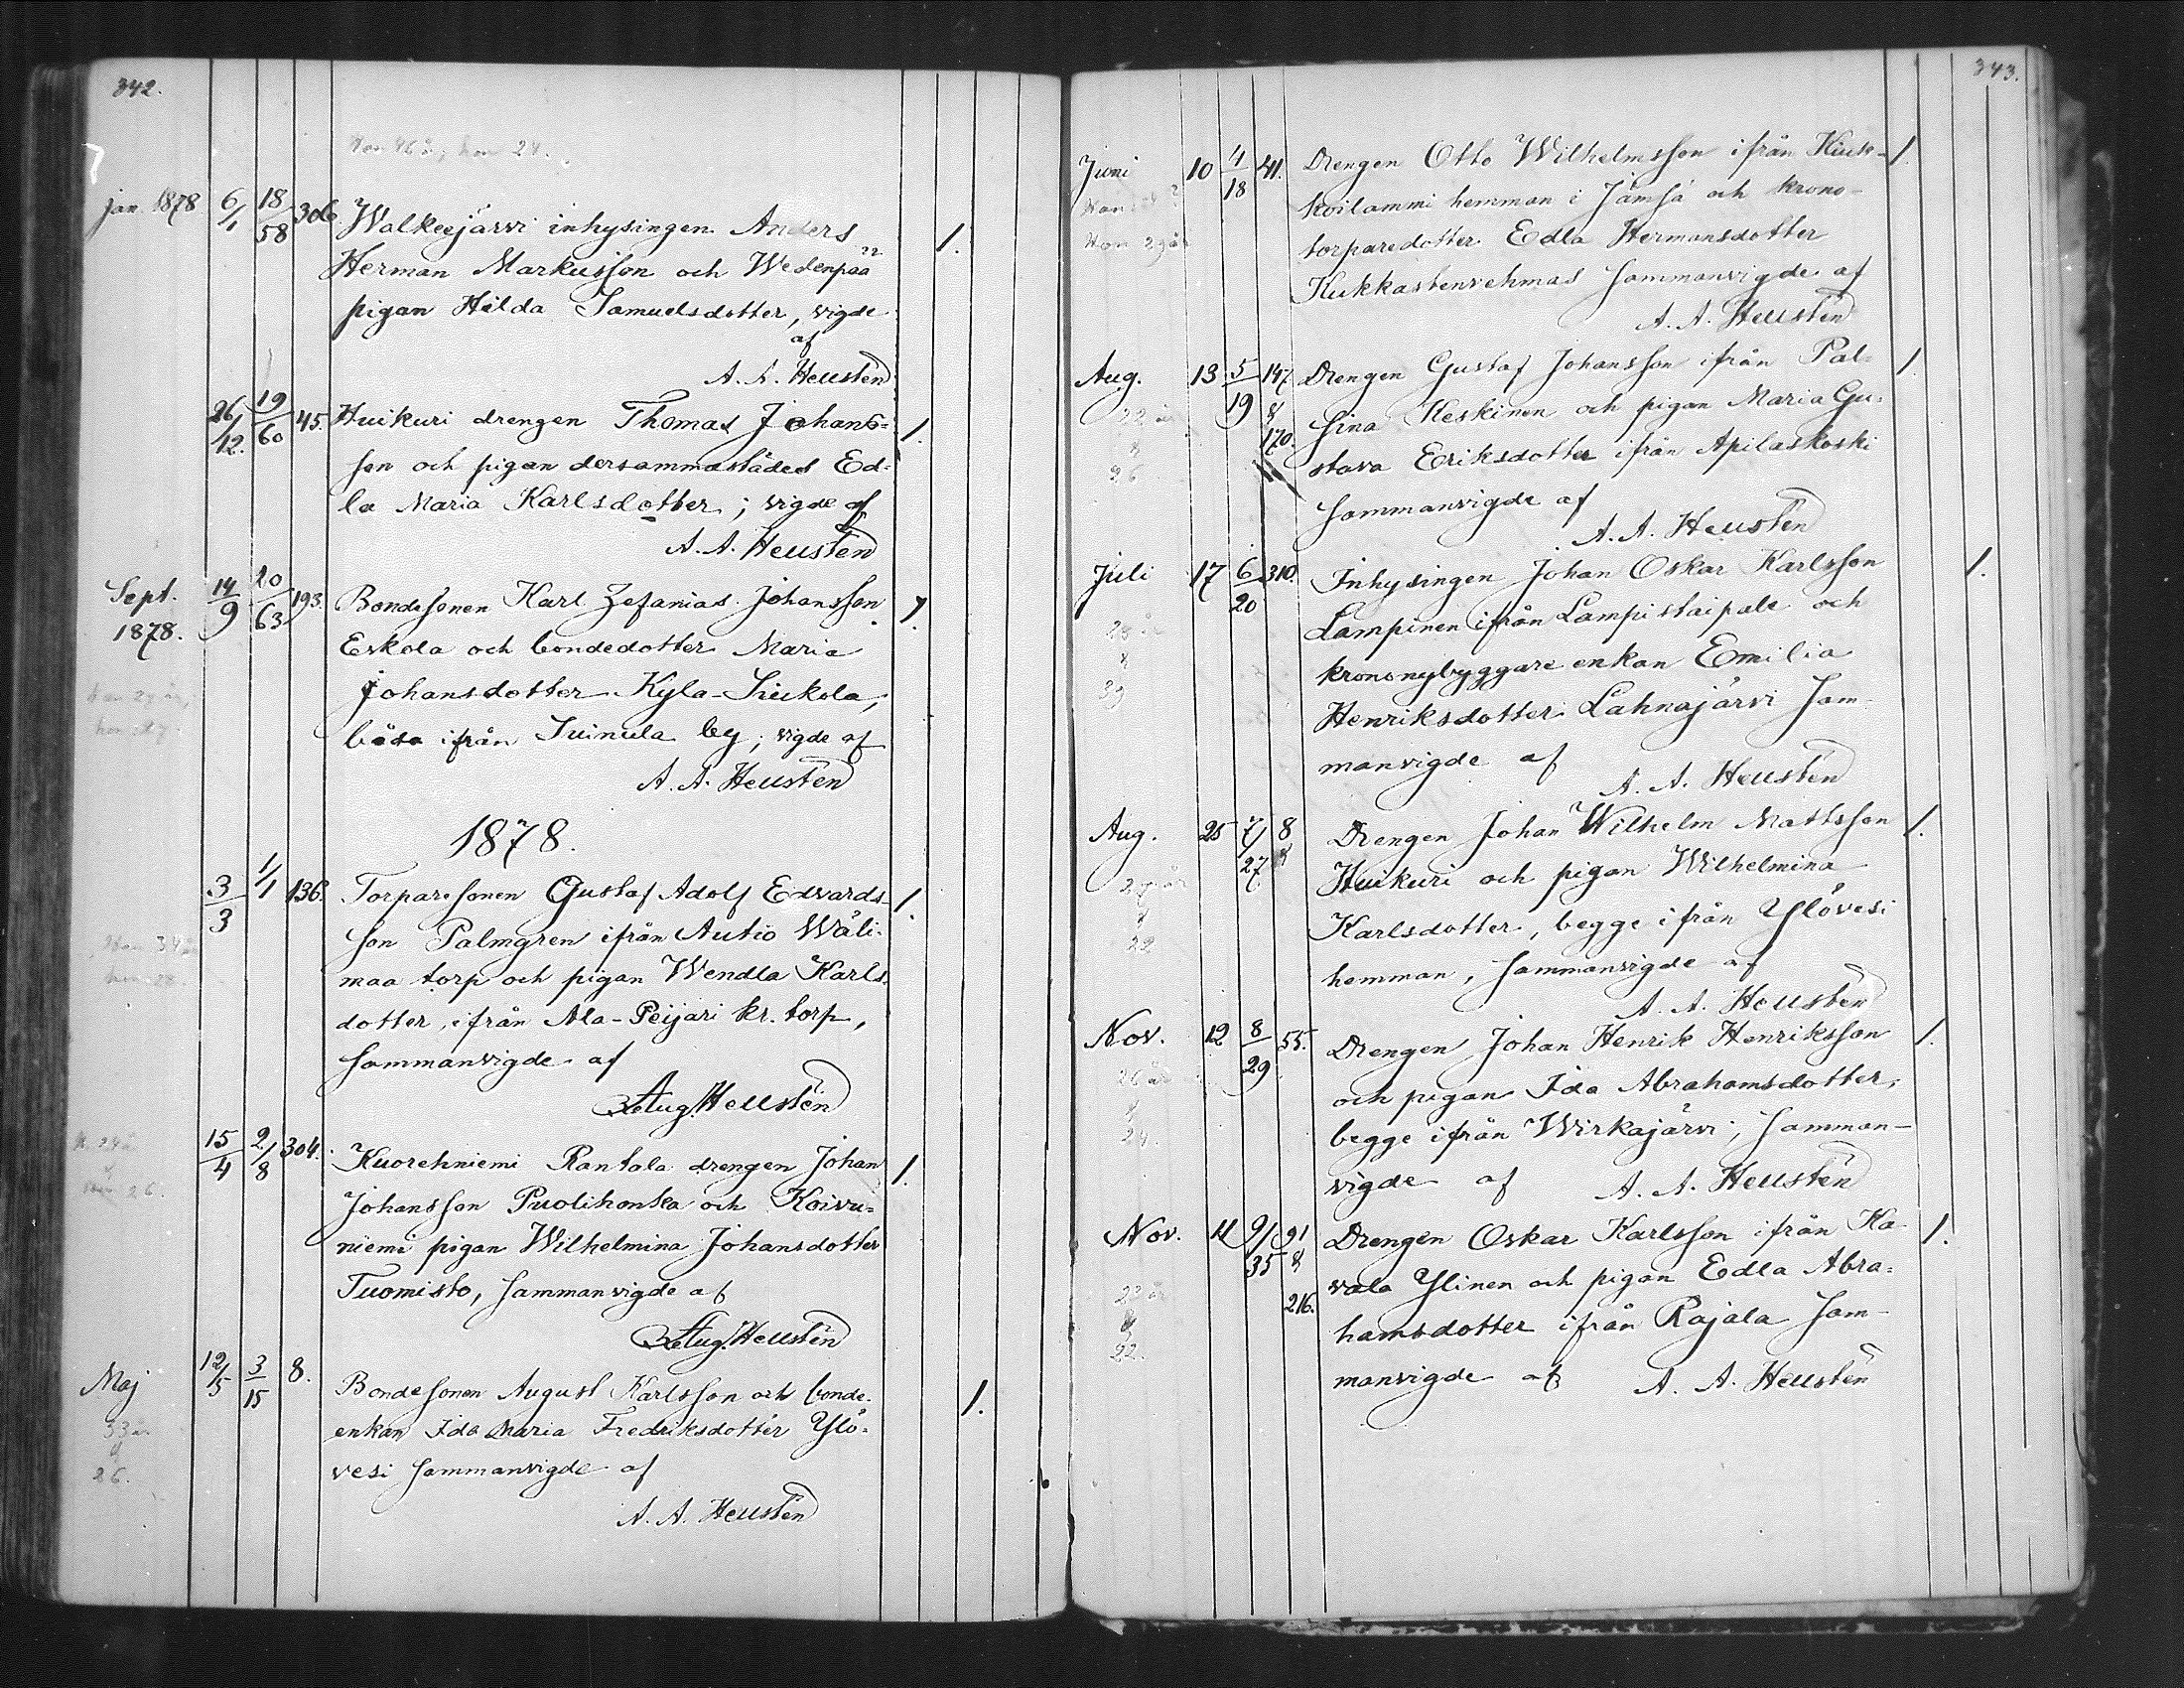 342.
Han 46 år, hon 24.
jan. 1878 6/1 18/58 306. Walkeejärvi inhysingen Anders 1.
Herman Markusson och Wedenpää
pigan Hilda Samuelsdotter, vigde
af
A. A. Heusten
26/12. 19/60 45. Huikuri drengen Thomas Johans= 1.
son och pigan dersammastädes Ed=
la Maria Karlsdotter; vigde af
A. A. Heusten
Sept. 1878. 14/9 20/63 193. Bondesonen Karl Zefanias Johansson 1.
Eskola och bondedotter Maria
Johansdotter Kyla-Siukola,
båda ifrån Suinula by; vigde af
A. A. Heusten
1878.
3/3 1/1 136. Torparesonen Gustaf Adolf Edvards- 1.
son Palmgren ifrån Autio Wäli-
maa torp och pigan Wendla Karls-
dotter, ifrån Ala-Peijari kr. torp,
sammanvigde af
Aug. Heusten
15/4 2/8 304. Kuorehniemi Rantala drengen Johan 1.
Johansson Puolihonka och Koivu=
niemi pigan Wilhelmina Johansdotter
Tuomisto, sammanvigde af
Aug. Heusten
Maj 12/5 3/15 8. Bondesonen August Karlsson och bonde- 1.
33 år
&
26.
enkan Ida Maria Fredriksdotter Ylö=
vesi sammanvigde af
A. A. Heusten
343.
Juni 10 4/18 41. Drengen Otto Wilhelmsson ifrån Kuk- 1.
Hon 29 år
koilammi hemman i Jämsä och krono-
torparedotter Edla Hermansdotter
Kukkastenrehmas sammanvigde af
A. A. Heusten
Aug. 13 5/19 147 & 170. Drengen Gustaf Johansson ifrån Pal= 1
22 år
&
26
sina Keskinen och pigan Maria Gu=
stava Eriksdotter ifrån Apilaskoski
sammanvigde af
A. A. Heusten
Juli 17 6/20 310. Inhysingen Johan Oskar Karlsson 1.
28 år
&
39
Lampinen ifrån Lampistaipale och
krononybyggare enkan Emilia
Henriksdotter Lahnajärvi sam-
manvigde af
A. A. Heusten
Aug. 25 7/27. 8 & Drengen Johan Wilhelm Mattsson 1.
&
22
Huikuri och pigan Wilhelmina
Karlsdotter, begge ifrån Ylövesi
hemman, sammanvigde af
A. A. Heusten
Nov. 12 8/29 55. Drengen Johan Henrik Henriksson 1.
26 år
&
24.
och pigan Ida Abrahamsdotter,
begge ifrån Wirkajärvi; samman-
vigde af A. A. Heusten
Nov. 11 9/35 91 & 216. Drengen Oskar Karlsson ifrån Ka- 1.
23 år
&
22.
vala Ylinen och pigan Edla Abra=
hamsdotter ifrån Rajala sam-
manvigde af A. A. Heusten